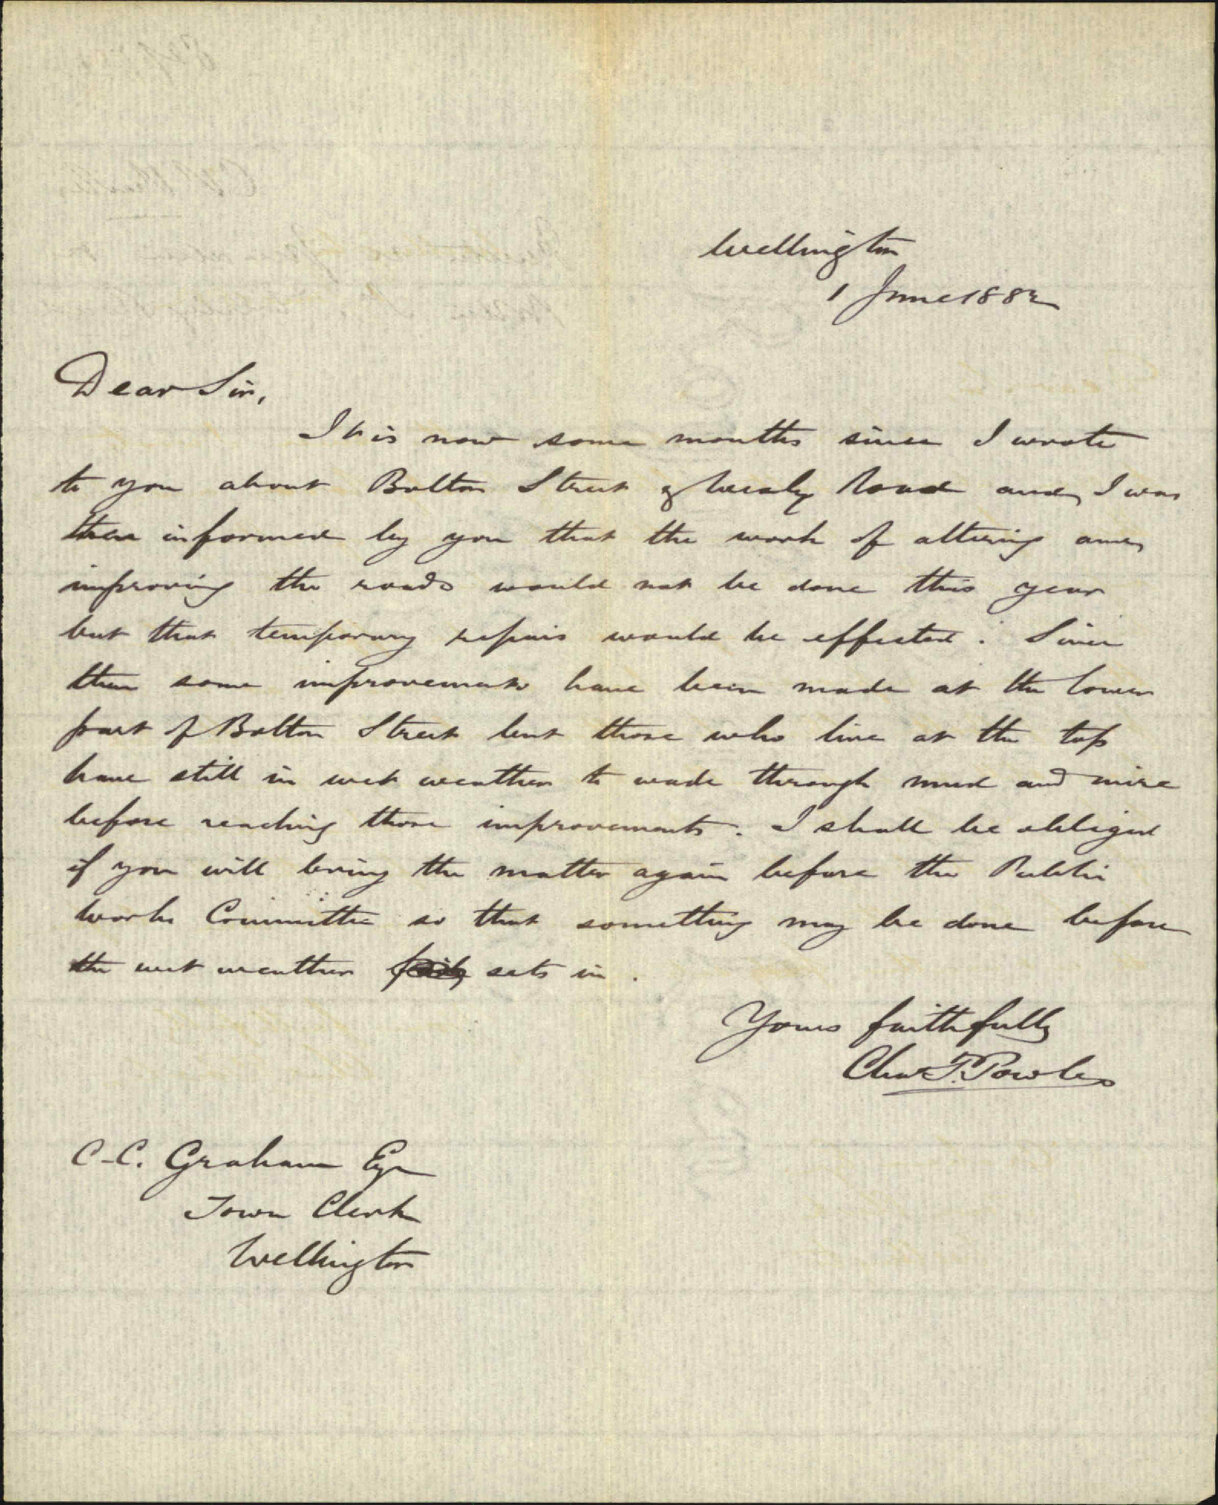 Wellington
1 June 1882
Dear Sir,
It is now some months since I wrote
to you about Bolton Street & Wesley Road and I was
then informed by you that the work of altering and
improving the roads would not be done this year
but that temporary repairs would be effected. Since
then some improvements have been made at the lower
part of Bolton Street but those who live at the top
have still in wet weather to wade through mud and mire
before reaching those improvements. I shall be obliged
if you will bring the matter again before the Public
Works Committee so that something may be done before
the wet weather sets in.
Yours faithfully
Chas T. Powles
C. C. Graham Esq
Town Clerk
Wellington